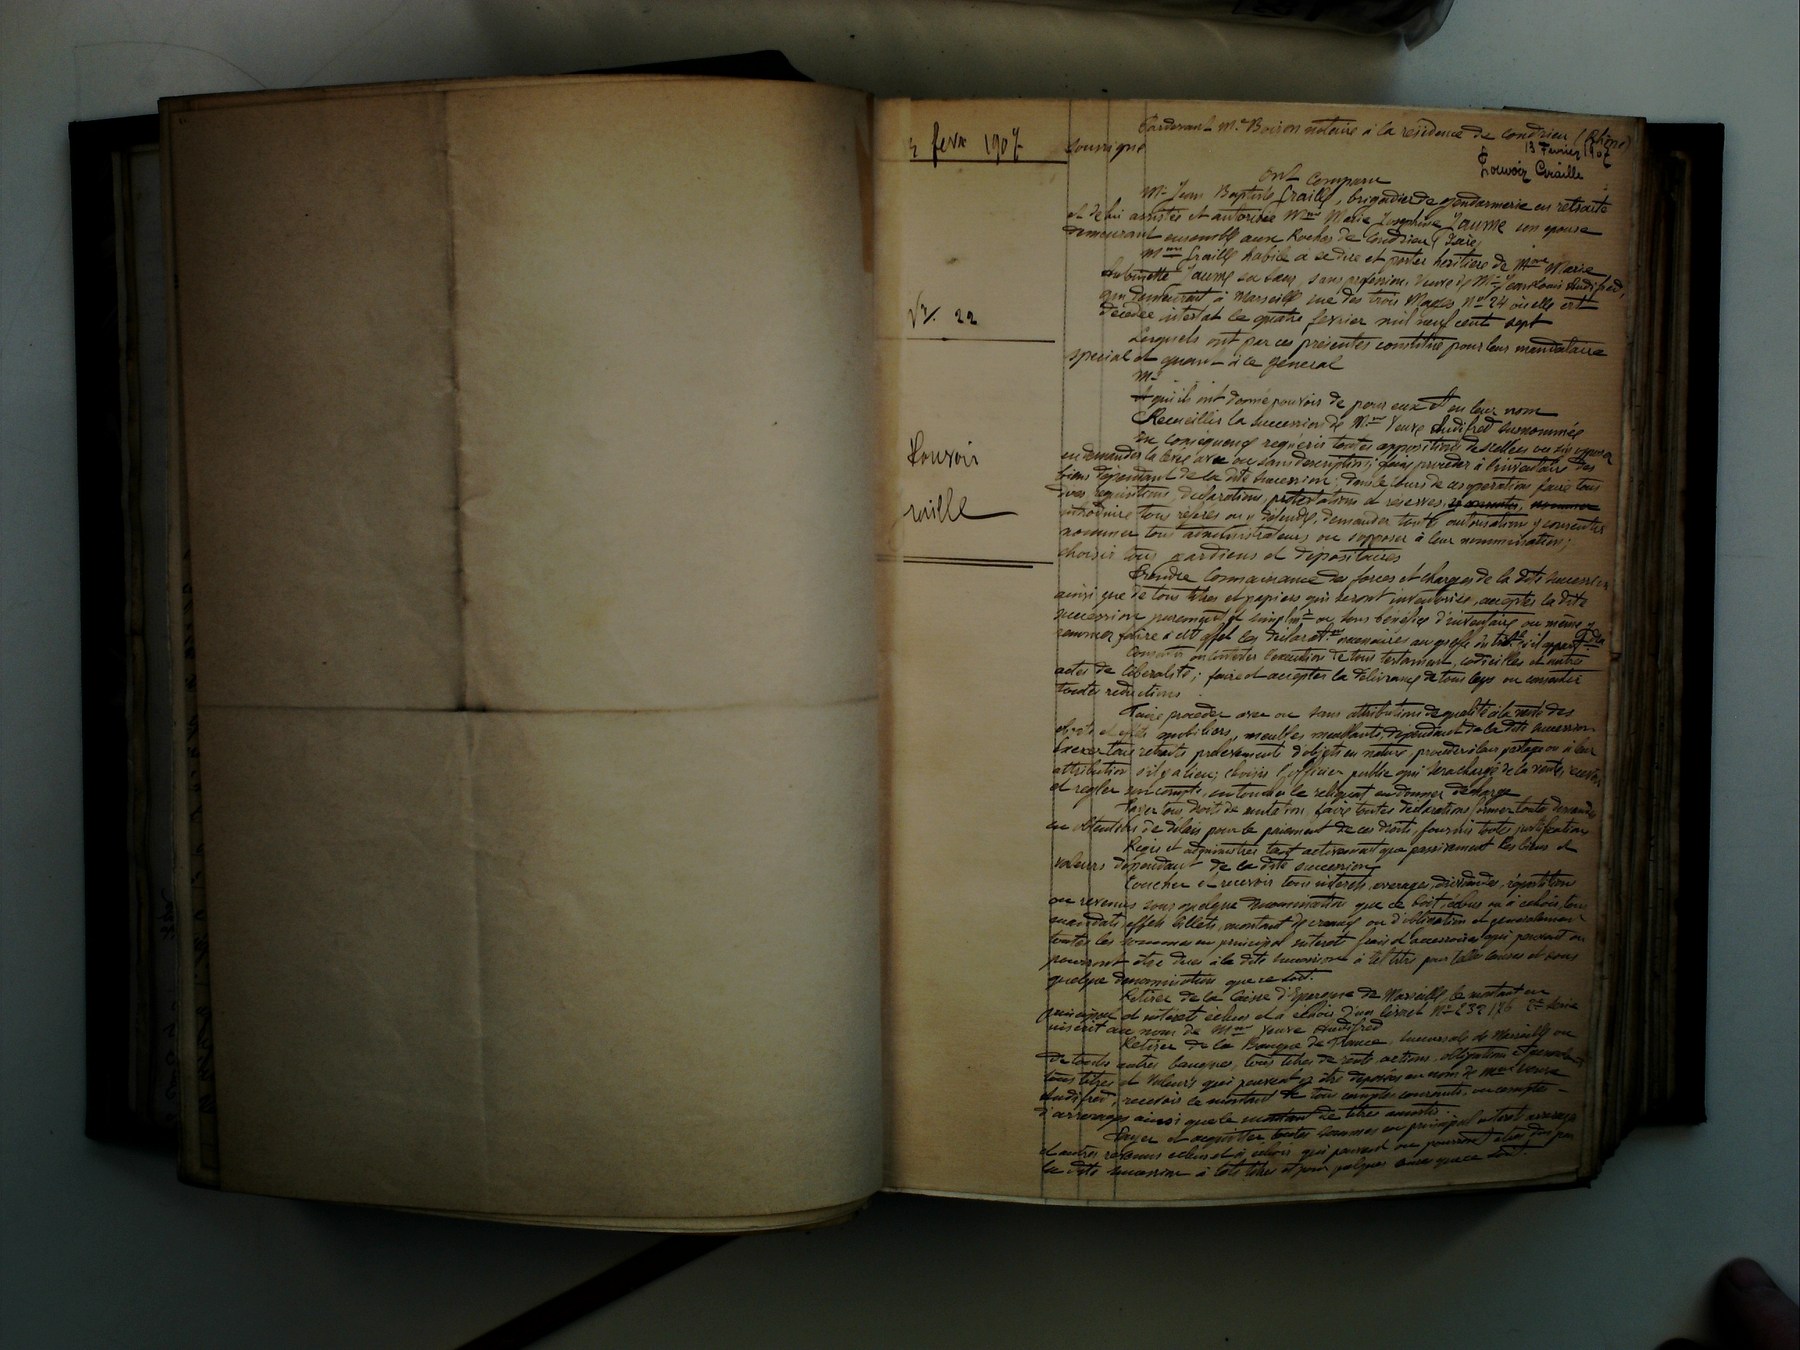 fevr 1907
N° 22
Pouvoir
raille
Pardevant Me Boiron notaire à la résidence de Condrieu (Rhône)
soussigné
13 Fevrier 1907
Pouvoir Craille
Ont Comparu
Mr Jean Baptiste Graille, brigadier de gendarmerie en retraite
et de lui assistée et autorisée Mme Marie Joséphine Jaume son épouse
demeurant ensemble aux Roches de Condrieu (Isère)
Mme Graille habile à se dire et porter héritière de Mme Marie
Jaume sa sœur, sans profession, veuve de Mr Jean Louis Audifred,
qui demeurait à Marseille rue des trois Mages, No 24 où elle est
décédée intestat le quatre fevrier mil neuf cent sept
Lesquels ont par ces présentes constitué pour leur mandataire
spécial et quant à ce général
Mr
A qui ils ont donné pouvoir de pour eux et en leur nom
Recueillir la succession de Mme Veuve Audifred susnommée
En conséquence requérir toutes appositions de scellés ou s'y opposer
en demander la levée avec ou sans description; faire procéder à l'inventaire des
biens dépendant de la dite succession; dans le cours de ces opérations faire tous
dires, réquisitions, déclarations, protestations et réserves,
introduire tous référés ou y défendre, demander toutes autorisations y consentir
nommer tous administrateurs ou s'opposer à leur nomination;
choisir tous gardiens et dépositaires
Prendre connaissance des forces et charges de la dite succession
ainsi que de tous titres et papiers qui seront inventoriés, accepter la dite
succession purement et simplmt ou sous bénéfice d'inventaire ou même y
renoncer faire à cet effet les déclaratons nécessaires au greffe du
Consentir ou contester l'exécution de tous testament, codicilles et autres
actes de libéralité; faire et accepter la délivrance de tous legs ou consentir
toutes réductions
Faire procéder avec ou sans attributions de qualité à la vente des
objets mobiliers, meubles meublants, dépendant de la dite succession
exercer tous retraits, prélèvement d'objets en nature, procéder à leur partage ou à leur
attribution s'il y a lieu; choisir l'officier public qui sera chargé de la vente,
et régler son compte, en toucher le reliquat en donner décharge
Payer tous droit de mutation, faire toutes déclarations former toute demande
en obtention de délais pour le paiement de ces droits, fournir toutes justification
Régir et administrer tant activement que passivement les biens et
valeurs dépendant de la dite succession
Toucher et recevoir tous intérêts, arrérages, dividendes, répartition
ou revenus sous quelque dénomination que ce soit, échus ou à échoir, tous
mandats, effets, billets, montant de créances ou d'obligation et généralement
toutes les sommes en principal intérêt frais et accessoires qui peuvent ou
pourront être dues à la dite succession à tel titre pour telles causes et sous
quelque dénomination que ce soit.
Retirer de la Caisse d'Épargne de Marseille, le montant en
principal et intérêt échus et à échoir d'un livret No 232 176 2e Série
inscrit au nom de Mme Veuve Audifred
Retirer de la Banque de France, succursale de Marseille ou
de toutes autres banques, tous titres de rente actions, obligation et
tous titres et valeurs qui peuvent y être déposées au nom de Mme Veuve
Audifred, recevoir le montant de tous comptes courants, ou compte
d'arrérages ainsi que le montant de titres amortis.
Payer et acquitter toutes sommes en principal intérêt arrérages
et autres échus et à échoir qui peuvent ou pourront être dus par
la dite succession à tels titres et pour quelques causes que ce soit.